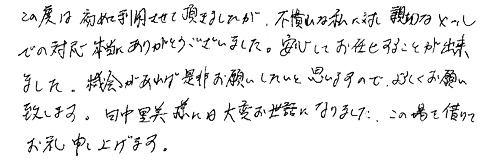 この度は初めて利用させて頂きましたが、不慣れな私に対し親切なメール
での対応本当にありがとうございました。安心してお任せすることが出来
ました。機会があれば是非お願いしたいと思いますので、よろしくお願い
致します。田中里美様には大変お世話になりました、この場を借りて
お礼申し上げます。